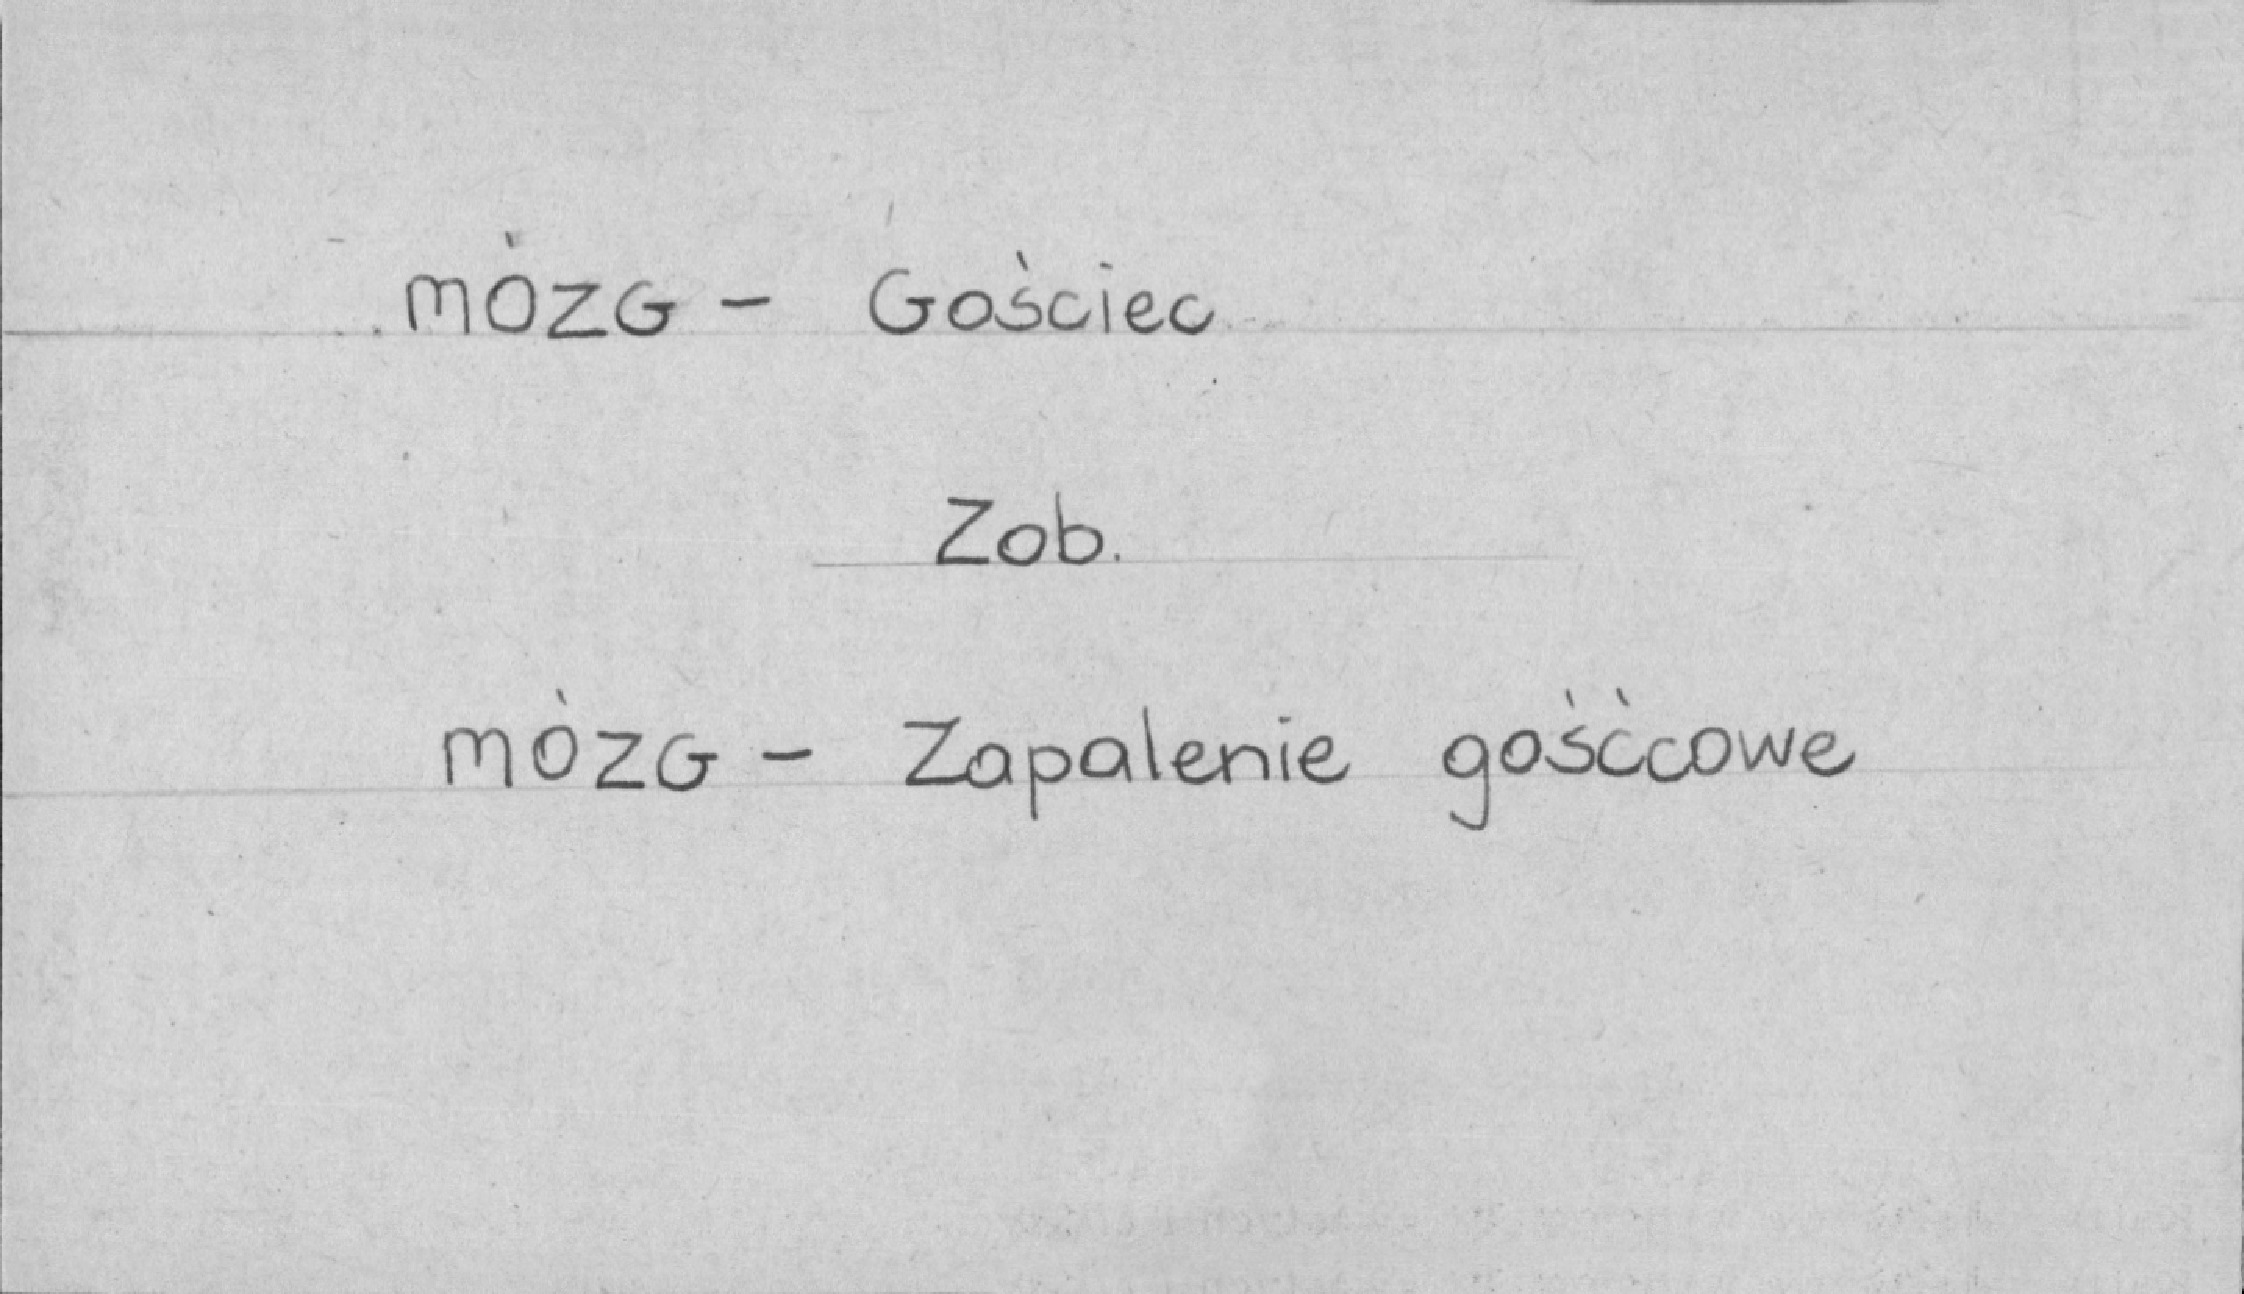 MÓZG - Gościec
Zob.
MÓZG - Zapalenie gośćcowe